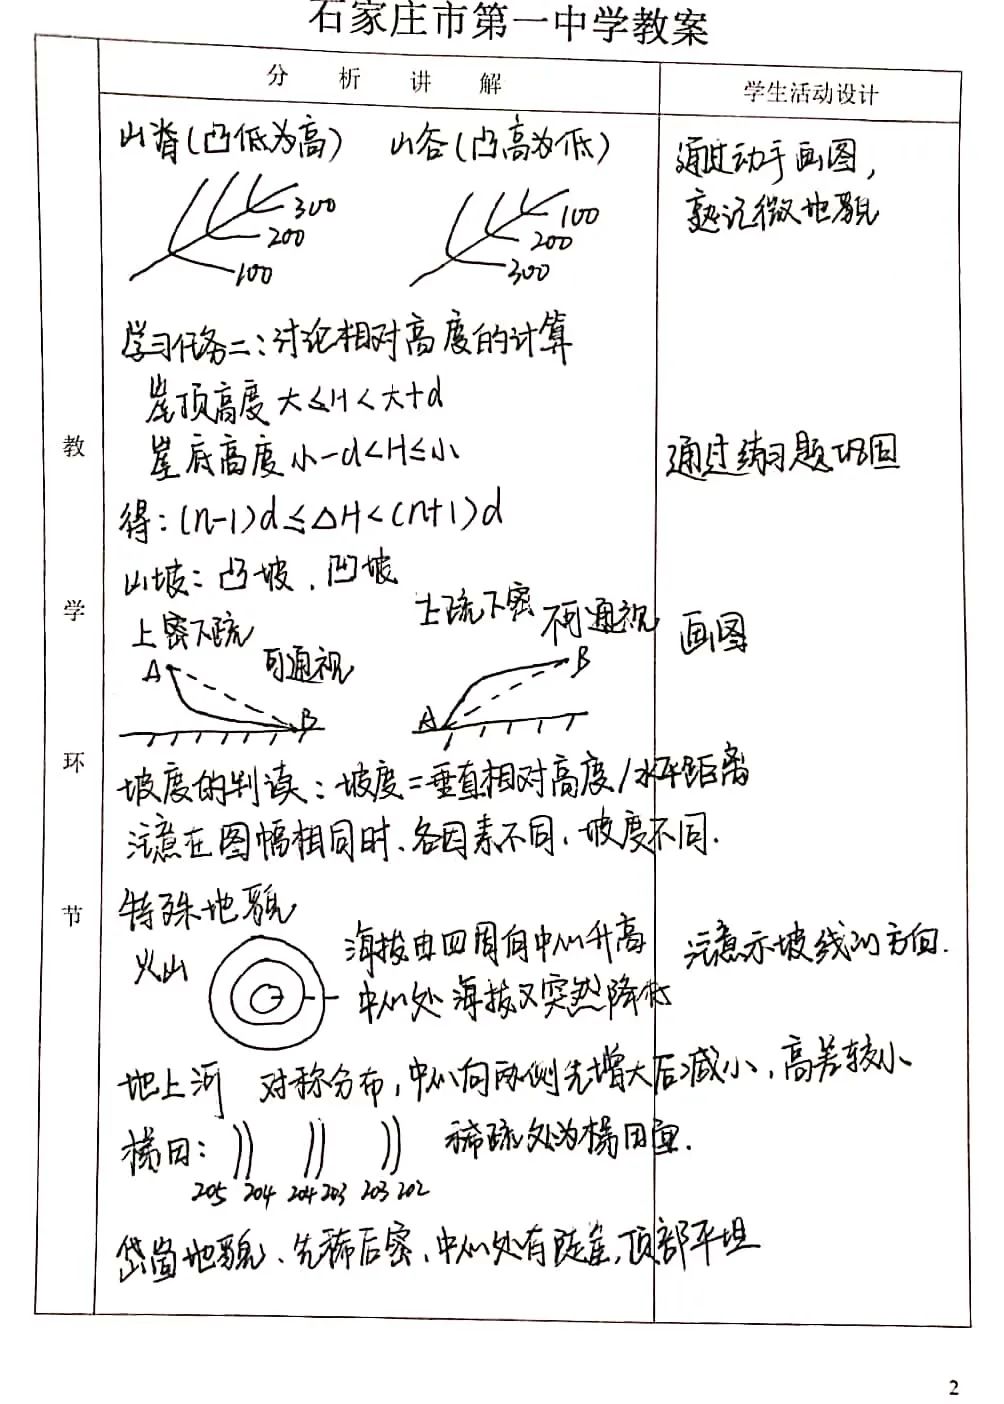 石家庄市第一中学教案
分析讲解
学生活动设计
教学环节
山脊(凸低为高) 山谷(凸高为低)
300
200
100
100
200
300
通过动手画图,
熟记微地貌
学习任务二:讨论相对高度的计算
崖顶高度 大≤H<大+d
崖底高度 小-d<H≤小
通过练习题巩固
得:(n-1)d≤△H<(n+1)d
山坡:凸坡、凹坡
上密下疏 可通视
上疏下密 不可通视
画图
A B
A B
坡度的判读:坡度=垂直相对高度/水平距离
注意在图幅相同时、各因素不同,坡度不同.
特殊地貌
火山
海拔由四周向中心升高
中心处海拔又突然降低
注意示坡线的方向.
地上河 对称分布,中心向两侧先增大后减小,高差较小
梯田: 稀疏处为梯田面.
205 204 204 203 203 202
岱崮地貌、先稀后密,中心处有陡崖,顶部平坦
2